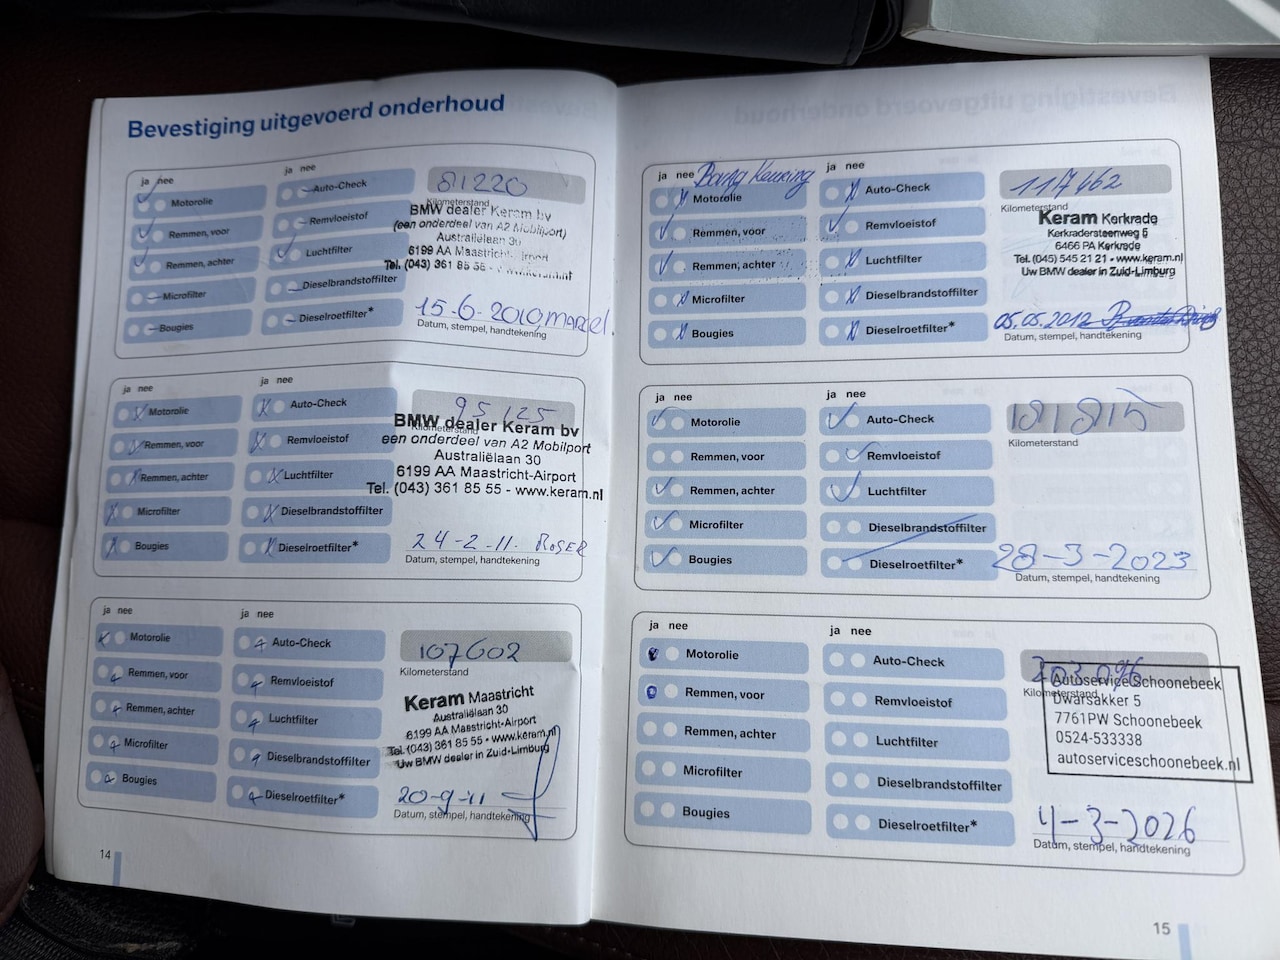 Bevestiging uitgevoerd onderhoud
ja nee
ja nee
Motorolie
Auto-Check
81220
Kilometerstand
Remmen, voor
Remvloeistof
BMW dealer Keram bv
(een onderdeel van A2 Mobilport)
Remmen, achter
Luchtfilter
Australiëlaan 30
6199 AA Maastricht-
Tel. (043) 361 85 55 -
Microfilter
Dieselbrandstoffilter
Bougies
Dieselroetfilter*
15-6-2010, marcel.
Datum, stempel, handtekening
ja nee
ja nee
Motorolie
Auto-Check
95125
Kilometerstand
Remmen, voor
Remvloeistof
BMW dealer Keram bv
een onderdeel van A2 Mobilport
Remmen, achter
Luchtfilter
Australiëlaan 30
6199 AA Maastricht-Airport
Tel. (043) 361 85 55 - www.keram.nl
Microfilter
Dieselbrandstoffilter
Bougies
Dieselroetfilter*
24-2-11. ROGER
Datum, stempel, handtekening
ja nee
ja nee
Motorolie
Auto-Check
107602
Kilometerstand
Remmen, voor
Remvloeistof
Keram Maastricht
Australiëlaan 30
Remmen, achter
Luchtfilter
6199 AA Maastricht-Airport
Tel. (043) 361 85 55 • www.keram.nl
Uw BMW dealer in Zuid-Limburg
Microfilter
Dieselbrandstoffilter
Bougies
Dieselroetfilter*
20-9-11
Datum, stempel, handtekening
14
ja nee
Keuring
ja nee
Motorolie
Auto-Check
117662
Kilometerstand
Remmen, voor
Remvloeistof
Keram Kerkrade
Kerkradersteenweg 5
Remmen, achter
Luchtfilter
6466 PA Kerkrade
Tel. (045) 545 21 21 - www.keram.nl
Uw BMW dealer in Zuid-Limburg
Microfilter
Dieselbrandstoffilter
Bougies
Dieselroetfilter*
05.05.2012
Datum, stempel, handtekening
ja nee
ja nee
Motorolie
Auto-Check
181815
Kilometerstand
Remmen, voor
Remvloeistof
Remmen, achter
Luchtfilter
Microfilter
Dieselbrandstoffilter
Bougies
Dieselroetfilter*
28-3-2023
Datum, stempel, handtekening
ja nee
ja nee
Motorolie
Auto-Check
203096
Kilometerstand
Remmen, voor
Remvloeistof
Autoservice Schoonebeek
Dwarsakker 5
Remmen, achter
Luchtfilter
7761PW Schoonebeek
0524-533338
autoserviceschoonebeek.nl
Microfilter
Dieselbrandstoffilter
Bougies
Dieselroetfilter*
4-3-2026
Datum, stempel, handtekening
15